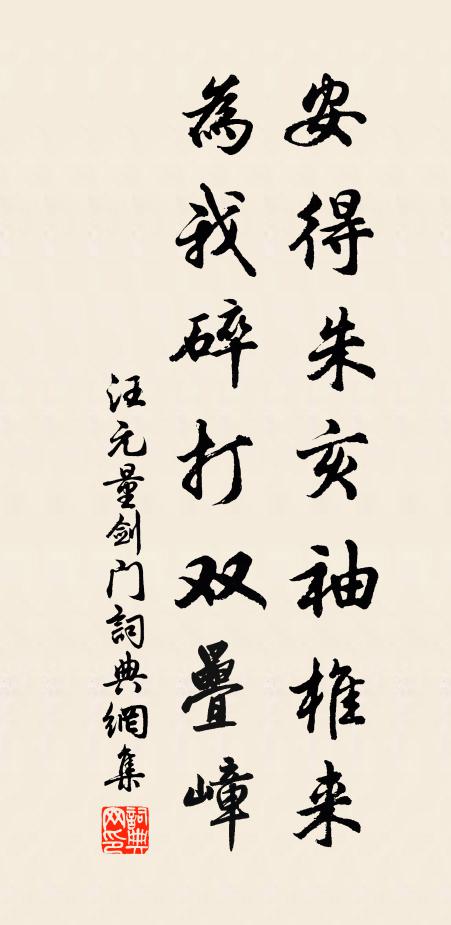 安得朱亥袖椎来
為我碎打双疊嶂
汪元量剑门詞典網集
詞典网印